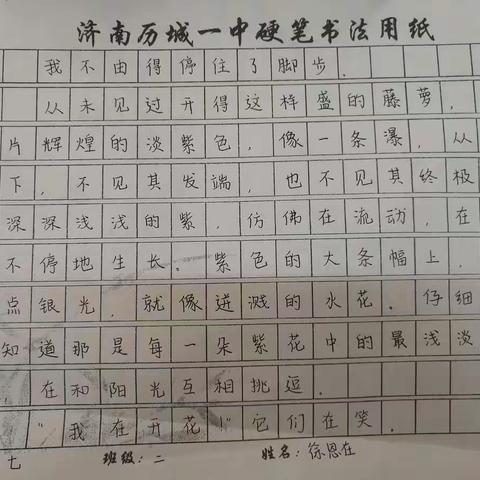 济南历城一中硬笔书法用纸
我不由得停住了脚步.
从未见过开得这样盛的藤萝,
片辉煌的淡紫色,像一条瀑,从
下,不见其发端,也不见其终极
深深浅浅的紫,仿佛在流动,在
不停地生长.紫色的大条幅上,
点银光,就像迸溅的水花.仔细
知道那是每一朵紫花中的最浅淡
,在和阳光互相挑逗.
"我在开花!"它们在笑.
七 班级:二 姓名:徐恩在